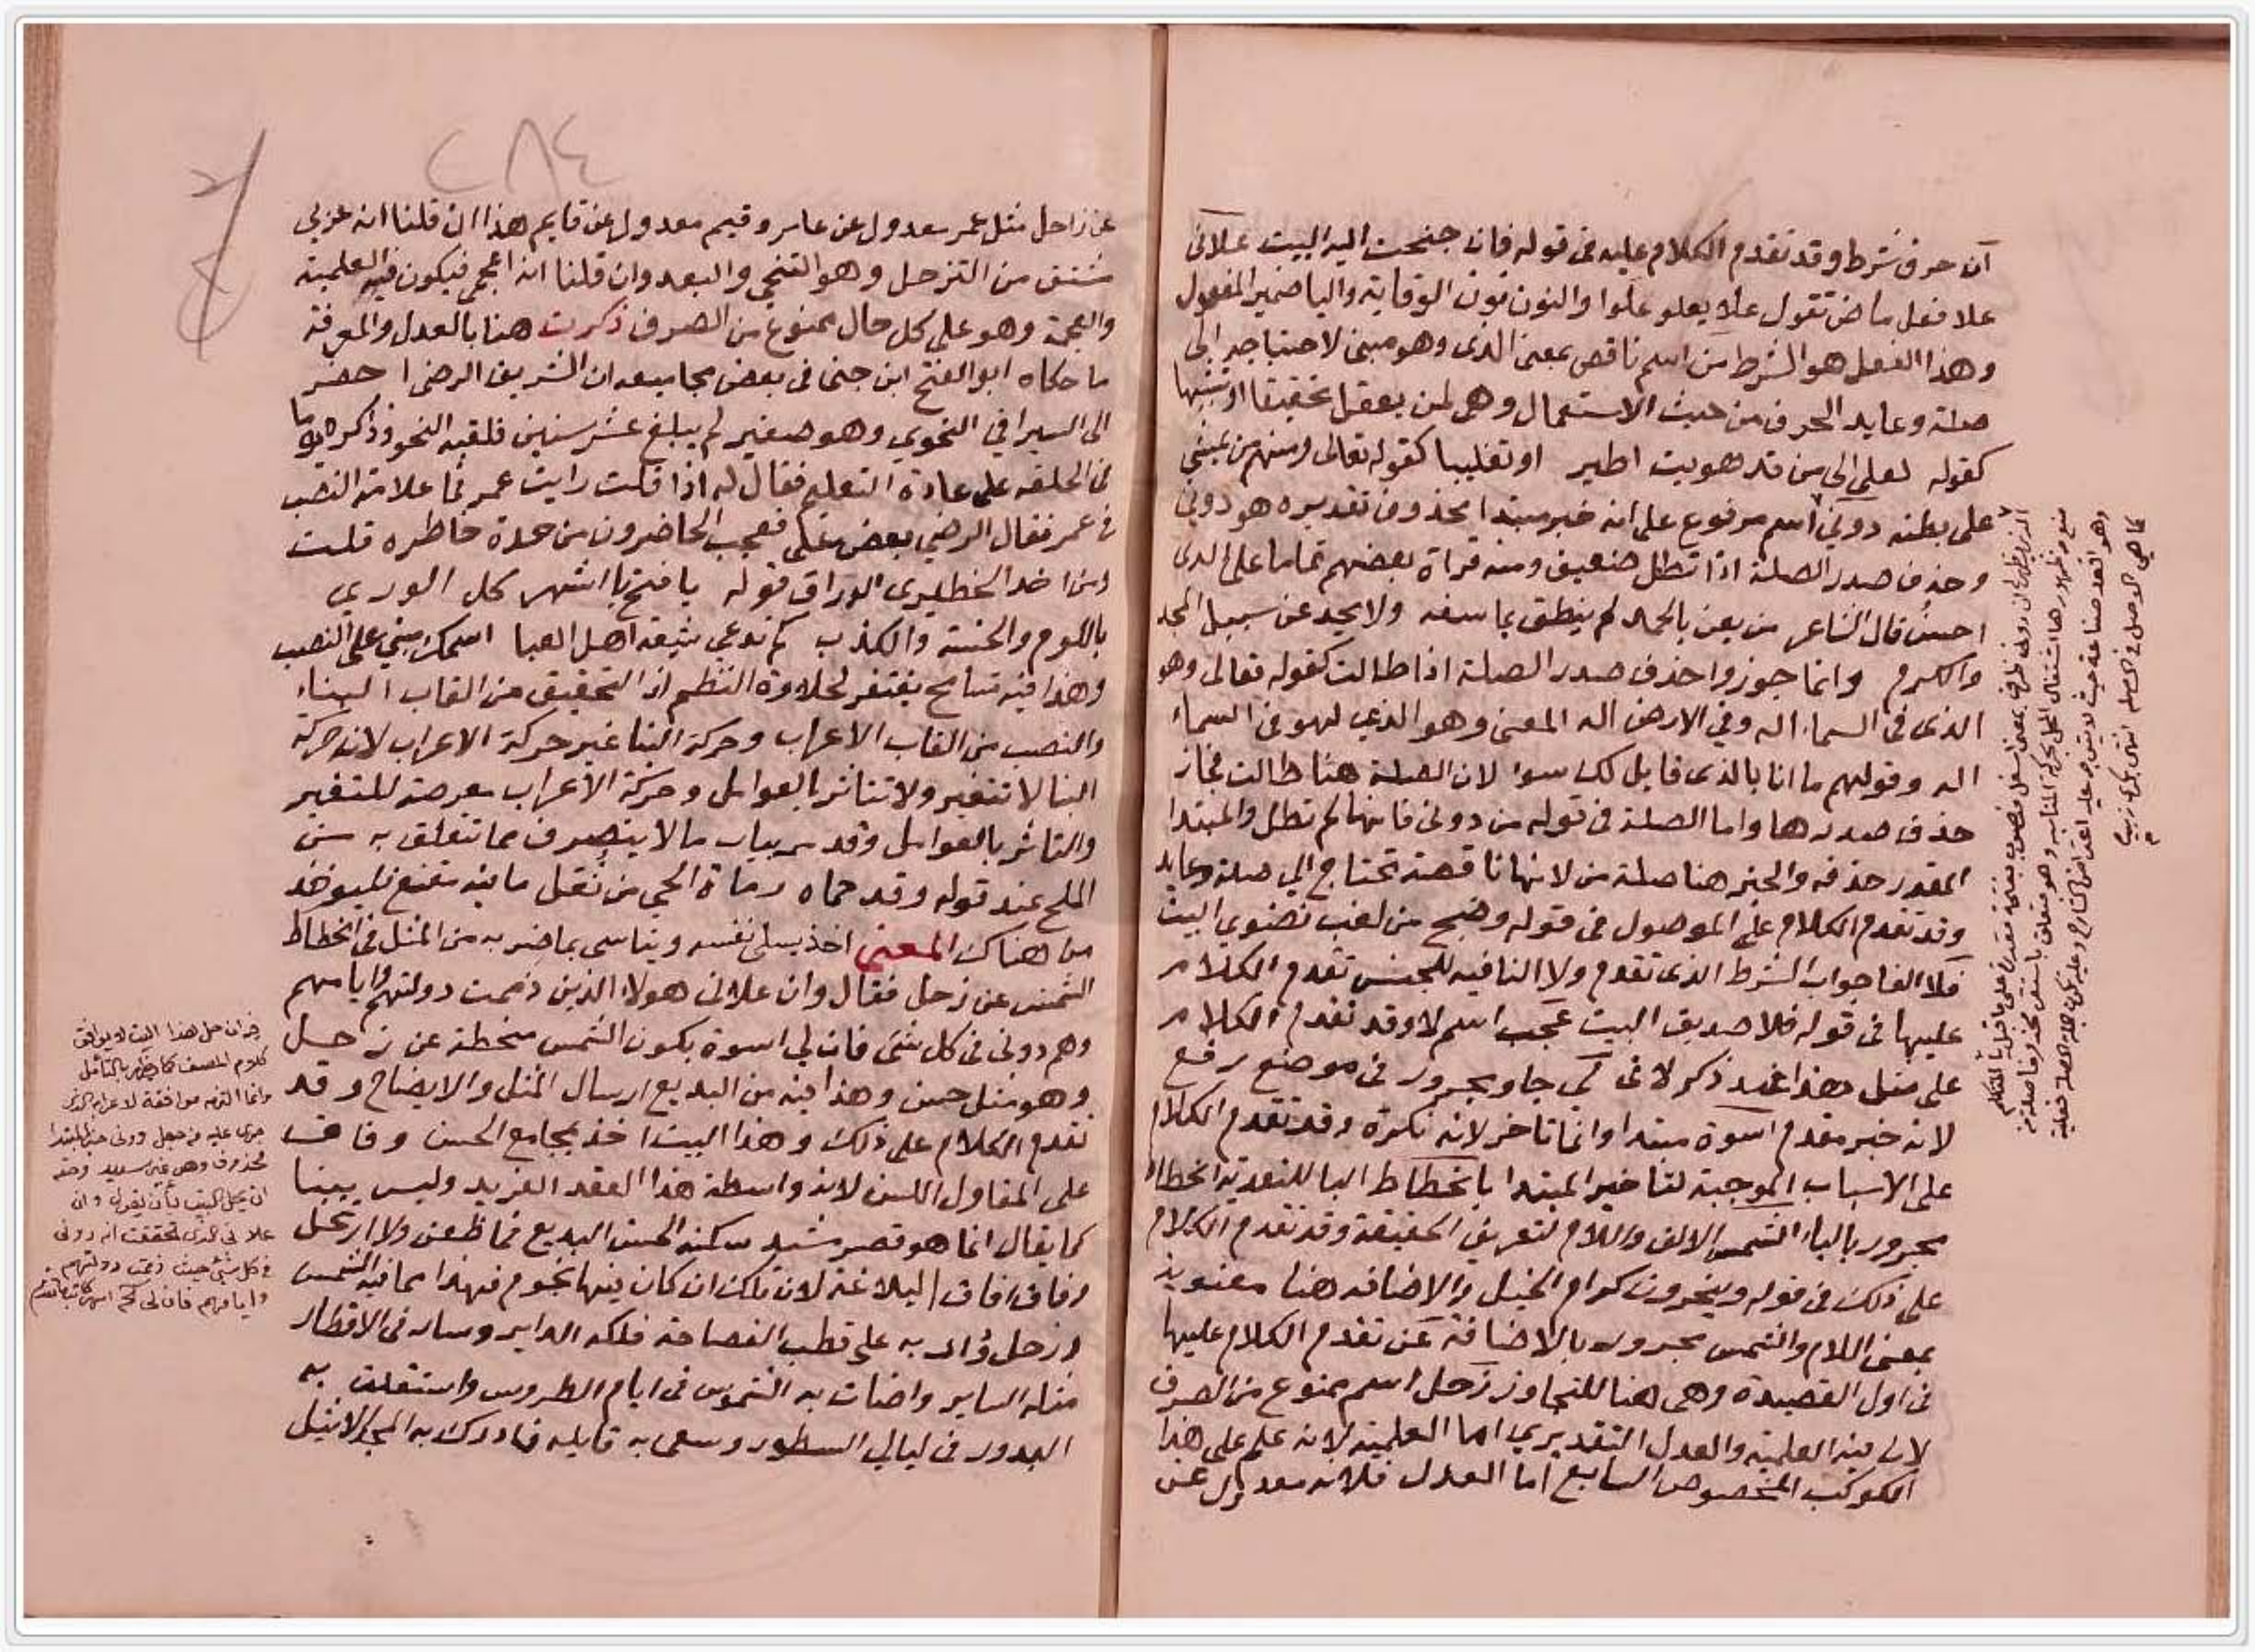 ان حرف شرط وقد تقدم الكلام عليه في قوله فان جنحت اليه البيت علاني
علا فعل ماض تقول علا يعلو علوا والنون نون الوقاية واليا ضمير المفعول
وهذا الفعل هو الشرط من اسم ناقص بمعنى الذي وهو مبني لاحتياجه الى
صلة وعايد الحرف من حيث الاستعمال وهي لمن يعقل تحقيقا او تشبيها
كقوله لعلي الى من قد هويت اطير او تغليبا كقوله تعالى ومنهم من يمشي
على بطنه دوني اسم مرفوع على انه خبر مبتدا محذوف تقديره هو دوني
وحذف صدر الصلة اذا تطل ضعيف ومنه قراة بعضهم تماما على الذي
احسن قال الشاعر من يعن بالحمد لم ينطق بما سفه ولا يحد عن سبيل المجد
والكرم وانما جوزوا حذف صدر الصلة اذا طالت كقوله تعالى وهو
الذي في السماء اله وفي الارض اله المعنى وهو الذي هو في السماء
اله وقولهم ما انا بالذي قايل لك سوا لان الصلة هنا طالت فجاز
حذف صدرها واما الصلة في قوله من دوني فانها لم تطل والمبتدا
المقدر حذفه والخبر هنا صلة من لانها ناقصة تحتاج الى صلة وعايد
وقد تقدم الكلام على الموصول في قوله وضج من لغب نضوي البيت
فلا الفا جواب الشرط الذي تقدم ولا النافيه للجنس تقدم الكلام
عليها في قوله فلا صديق البيت عجب اسم لا وقد تقدم الكلام
على مثل هذا عند ذكر لا في لي جار ومجرور في موضع رفع
لانه خبر مقدم اسوة مبتدا وانما تاخر لانه نكرة وقد تقدم الكلام
على الاسباب الموجبة لتاخير المبتدا بانحطاط البا للتعدية انحطاط
مجرور بالباء الشمس الالف واللام لتعريف الحقيقة وقد تقدم الكلام
على ذلك في قوله وينحرون كرام الخيل والاضافه هنا معنوية
بمعنى اللام والشمس مجرور بالاضافة عن تقدم الكلام عليها
في اول القصيدة وهي هنا للتجاوز زحل اسم ممنوع من الصرف
لان فيه العلمية والعدل التقديري اما العلمية لانه علم على هذا
الكوكب المخصوص السابع اما العدل فلانه معدول عن
عن زاحل مثل عمر معدول عن عامر وقيم معدول عن قايم هذا ان قلنا انه عربي
مشتق من التزحل وهو التنحي والبعد وان قلنا انه اعجمي فيكون فيه العلمية
والعجمة وهو على كل حال ممنوع من الصرف ذكرت هنا بالعدل والمعرفة
ما حكاه ابو الفتح ابن جني في بعض مجاميعه ان الشريف الرضى احضر
الى السيرافي النحوي وهو صغير لم يبلغ عشر سنين فلقنه النحو وذاكره يوما
في الحلقه على عادة التعليم فقال له اذا قلت رايت عمر فما علامة النصب
في عمر فقال الرضي بغض علي فعجب الحاضرون من حدة خاطره قلت
ومن اخذ الخطيري الوراق قوله يا فتح يا اشهر كل الوري
باللوم والخسة والكذب كم تدعي شيعة اهل العبا اسمك مبني على النصب
وهذا فيه تسامح يغتفر لحلاوة النظم اذ التحقيق من القاب البناء
والنصب من القاب الاعراب وحركة البنا غير حركة الاعراب لان حركة
البنا لا تتغير ولا تتاثر بالعوامل وحركة الاعراب بعرضة للمتغير
والتاثر بالعوامل وقد مر بباب ما لا ينصرف مما تتعلق به من
الملح عند قوله وقد حماه رماة الحي من ثعل ما فيه مقنع فليوخذ
من هناك المعنى اخذ يسلي نفسه ويتاسى بما ضربه من المثل في انحطاط
الشمس عن زحل فقال وان علاني هولاء الذين ذممت دولتهم وايامهم
وهم دوني في كل شئ فان لي اسوة بكون الشمس منحطة عن زحل
وهو مثل حسن وهذا فيه من البديع ارسال المثل والايضاح وقد
تقدم الكلام على ذلك وهذا البيت اخذ بمجامع الحسن وفاق
على المقاول اللسن لانه واسطة هذا العقد الفريد وليس بيتا
كما يقال انما هو قصر مشيد سكنه الحسن البديع فما ظعن ولا ارتحل
وفاق افاق البلاغة لان تلك ان كان فيها نجوم فهذا مما فيه الشمس
وزحل ودار به على قطب الفصاحة فلكه الداير وسار في الاقطار
مثله الساير واضات به الشموس في ايام الطروس واستقلت به
البدور في ليالي السطور وسعى به قايله فادرك به المجد الاثيل
٢٨٤
كلام المصنف كما يظهر بالتامل
علاني الذي تحققت انه دوني
في كل شئ حيث ذممت دولتهم